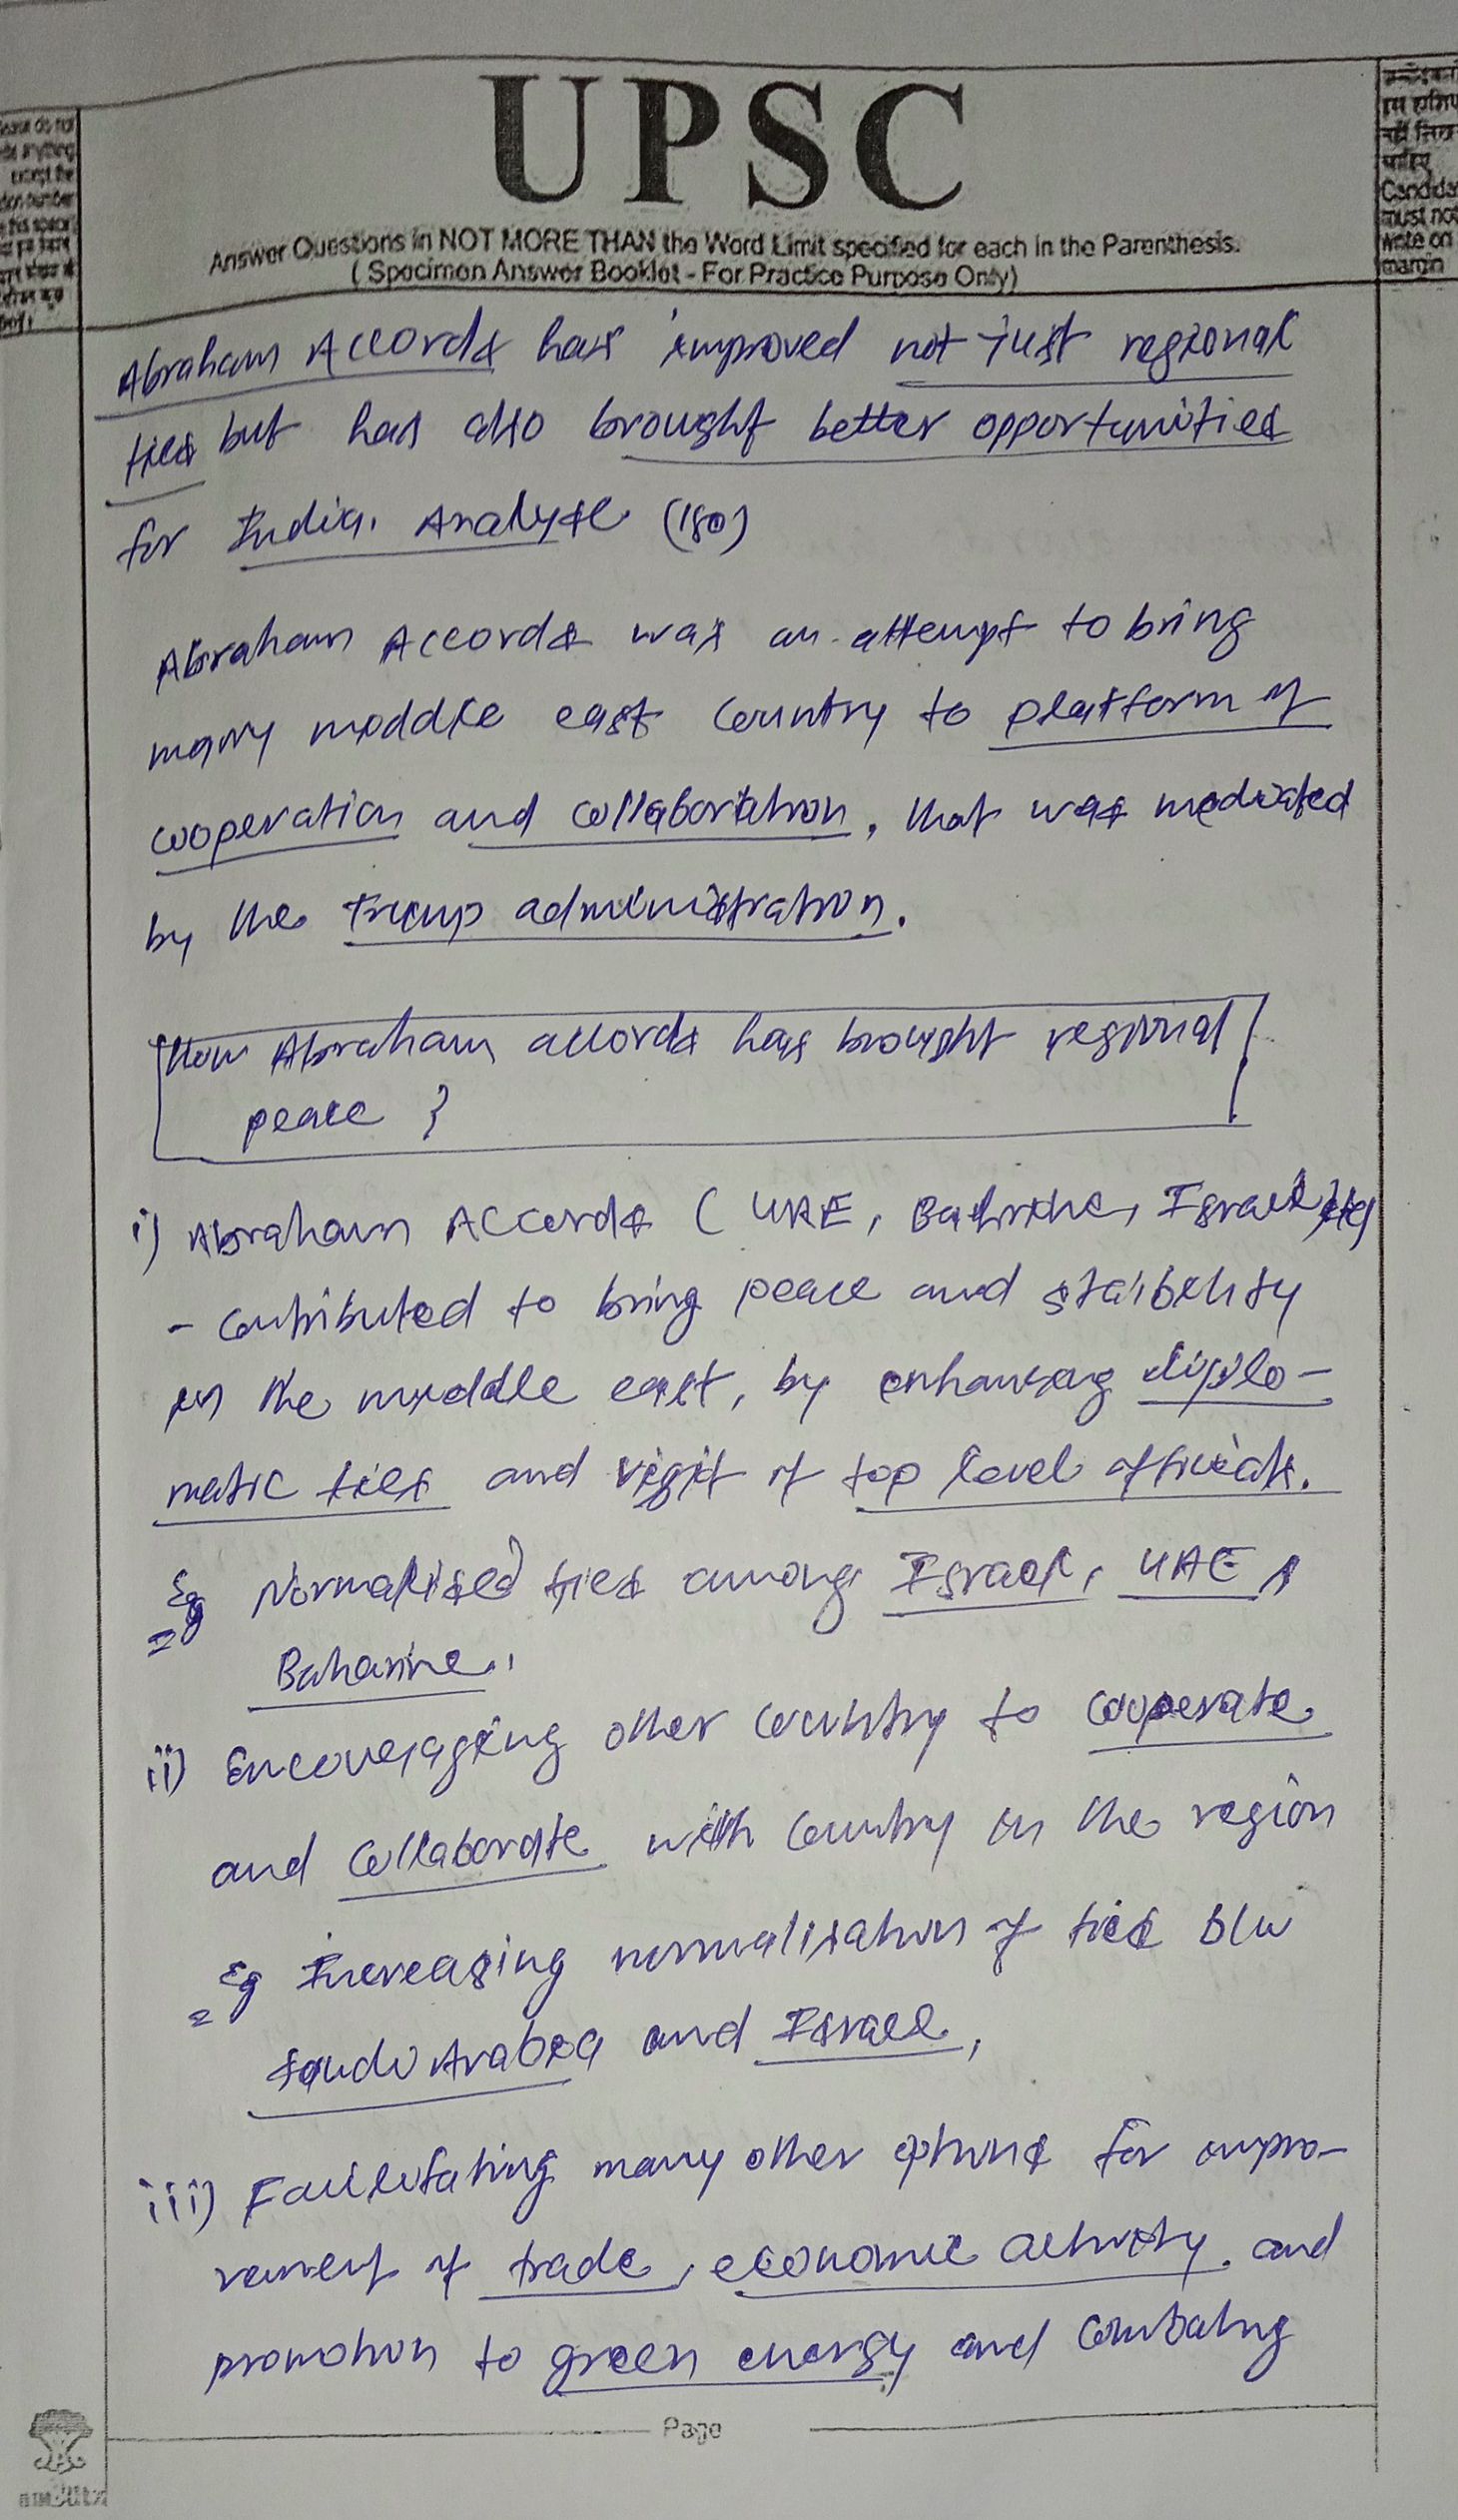 UPSC
Answer Questions in NOT MORE THAN the Word Limit specified for each in the Parenthesis.
( Specimen Answer Booklet - For Practice Purpose Only)
Please do not
write anything
except the
question number
this space
Candidate
must not
write on
margin
Abraham Accords has improved not just regional
ties but has also brought better opportunities
for India. Analyse (150)
Abraham Accords was an attempt to bring
many middle east country to platform of
cooperation and collaboration, that was mediated
by the Trump administration.
How Abraham accords has brought regional
peace ?
i) Abraham Accords ( UAE, Israel etc)
- contributed to bring peace and stability
in the middle east, by enhancing diplo-
matic ties and visit of top level officials.
Eg Normalised ties among Israel, UAE,
Baharine.
ii) Encouraging other country to cooperate
and collaborate with country in the region
Eg Increasing normalisation of ties b/w
Saudi Arabia and Israel,
iii) Facilitating many other options for impro-
vement of trade, economic activity and
promotion to green energy and combating
Page